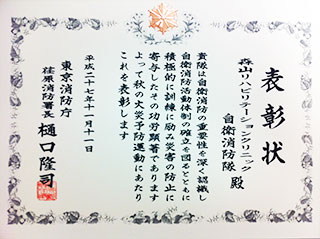 表彰状
森山リハビリテーションクリニック
自衛消防隊 殿
貴隊は自衛消防の重要性を深く認識し
自衛消防活動体制の確立を図るとともに
積極的に訓練に励み災害の防止に
寄与したその功労顕著であります
よって秋の火災予防運動にあたり
これを表彰します
平成二十七年十一月十一日
東京消防庁
荏原消防署長 樋口隆司